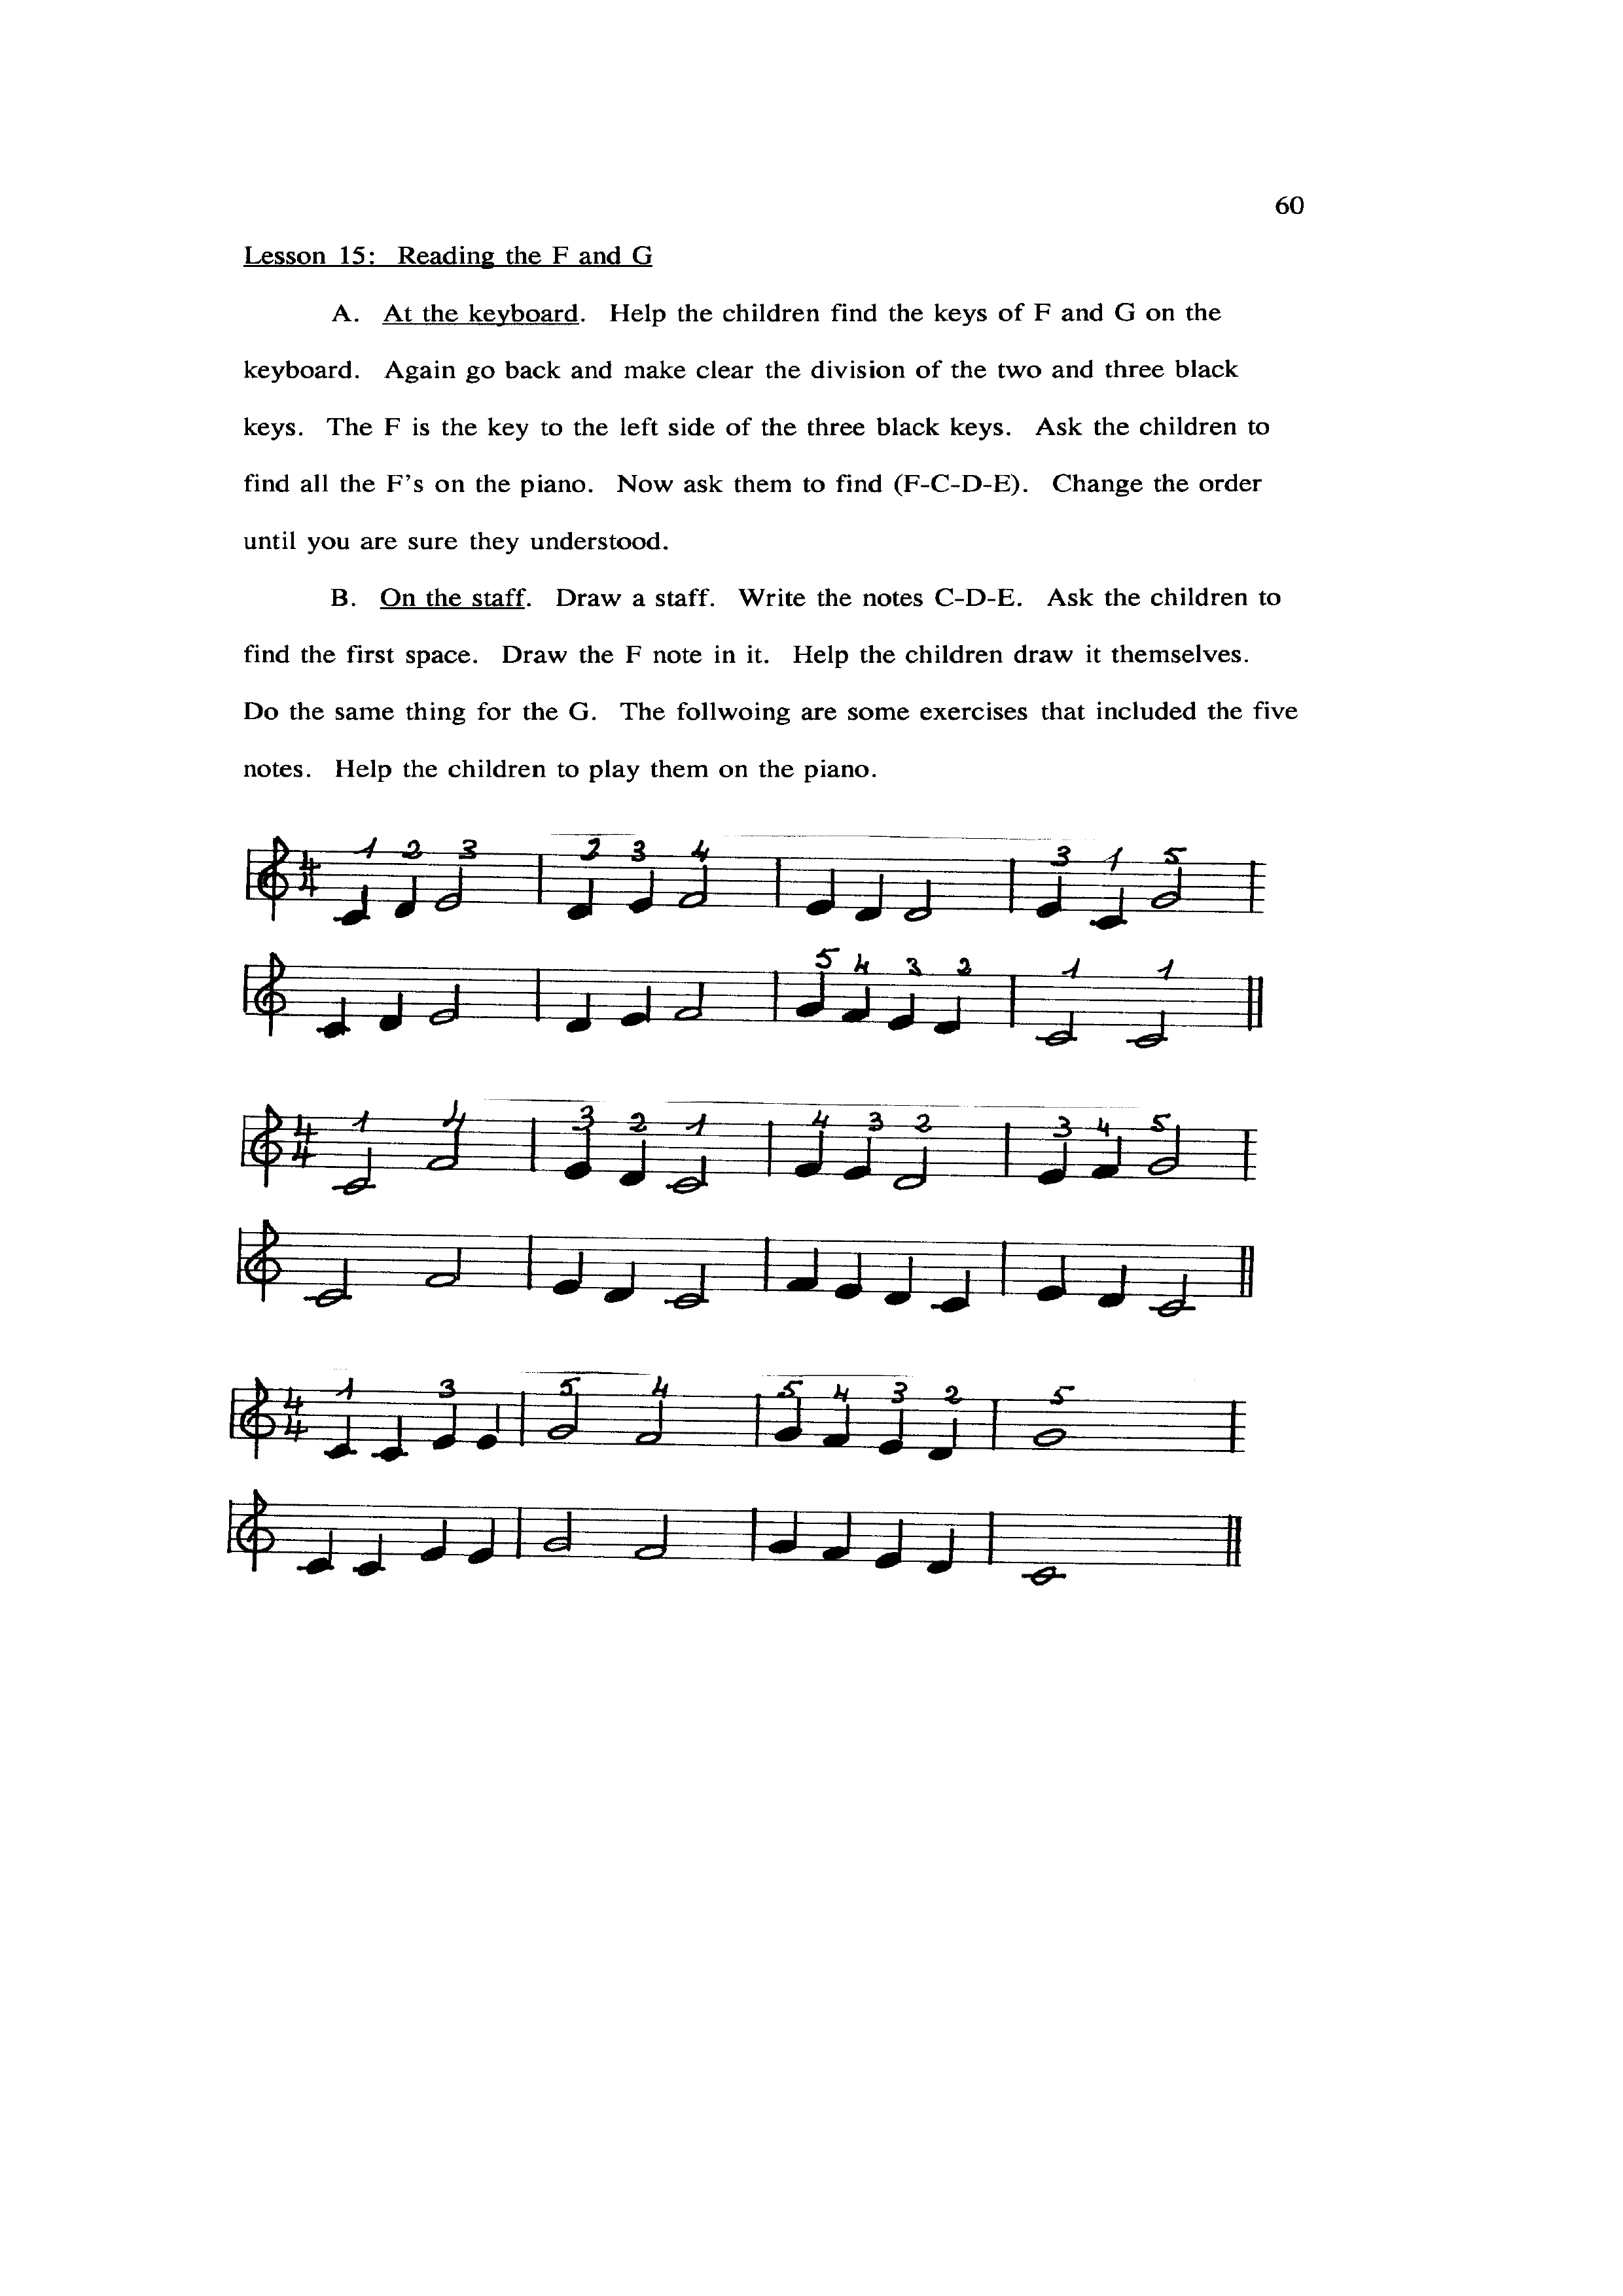 60
Lesson 15: Reading the F and G
A. At the keyboard. Help the children find the keys of F and G on the
keyboard. Again go back and make clear the division of the two and three black
keys. The F is the key to the left side of the three black keys. Ask the children to
find all the F's on the piano. Now ask them to find (F-C-D-E). Change the order
until you are sure they understood.
B. On the staff. Draw a staff. Write the notes C-D-E. Ask the children to
find the first space. Draw the F note in it. Help the children draw it themselves.
Do the same thing for the G. The follwoing are some exercises that included the five
notes. Help the children to play them on the piano.
4 4 1 2 3 2 3 4 3 1 5
5 4 3 2 1 1
4 4 1 4 3 2 1 4 3 2 3 4 5
4 4 1 3 5 4 5 4 3 2 5